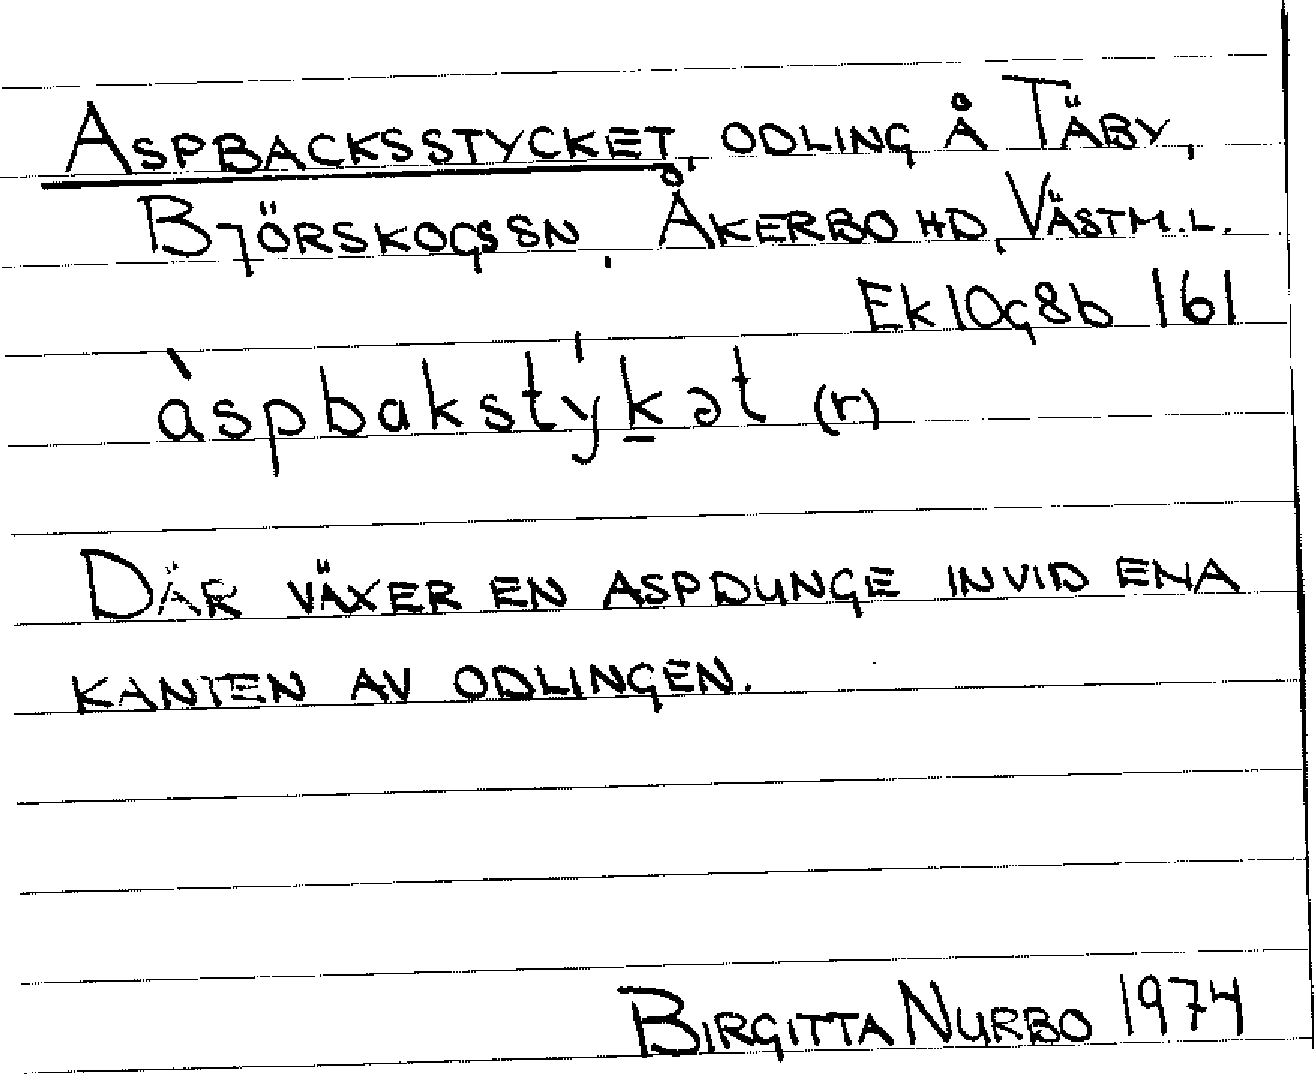 ASPBACKSSTYCKET, ODLING Å TÄBY,
BJÖRSKOGS SN, ÅKERBO HD, VÄSTM.L.
Ek 10g8b 161
àspbakstýk̲ət (r)
DÄR VÄXER EN ASPDUNGE INVID ENA
KANTEN AV ODLINGEN.
BIRGITTA NURBO 1974